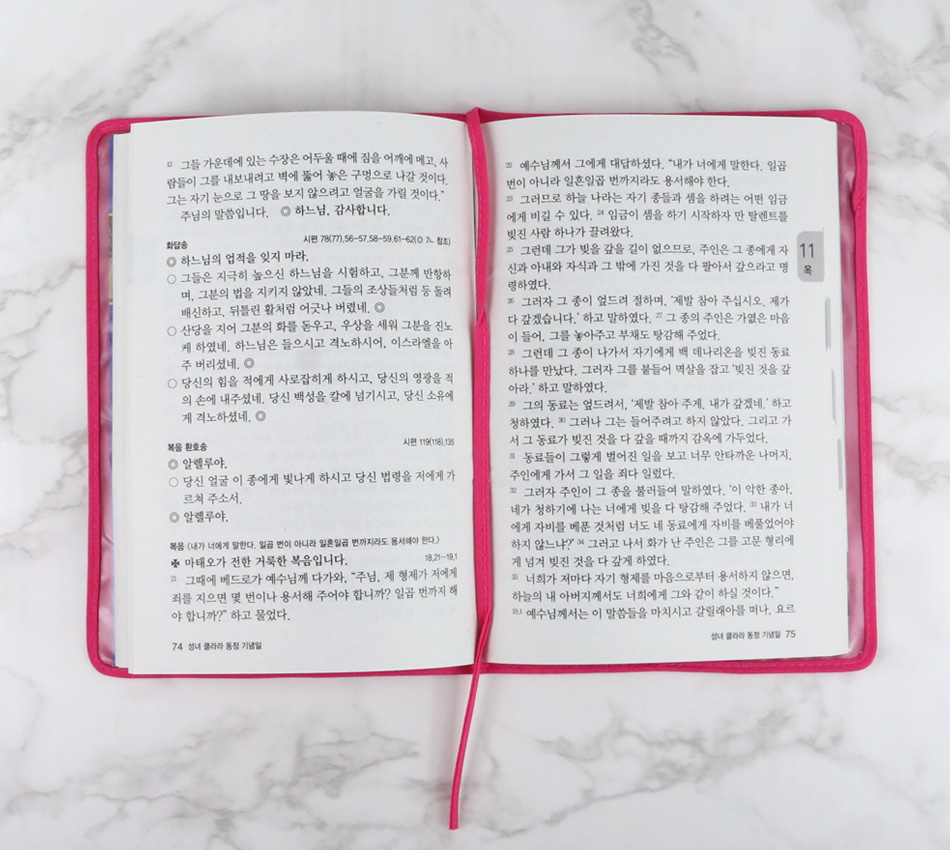 12 그들 가운데에 있는 수장은 어두울 때에 짐을 어깨에 메고, 사
람들이 그를 내보내려고 벽에 뚫어 놓은 구멍으로 나갈 것이다.
그는 자기 눈으로 그 땅을 보지 않으려고 얼굴을 가릴 것이다.”
주님의 말씀입니다. ◎ 하느님, 감사합니다.
화답송 시편 78(77),56-57.58-59.61-62(◎ 7ㄴ 참조)
◎ 하느님의 업적을 잊지 마라.
○ 그들은 지극히 높으신 하느님을 시험하고, 그분께 반항하
며, 그분의 법을 지키지 않았네. 그들의 조상들처럼 등 돌려
배신하고, 뒤틀린 활처럼 어긋나 버렸네. ◎
○ 산당을 지어 그분의 화를 돋우고, 우상을 세워 그분을 진노
케 하였네. 하느님은 들으시고 격노하시어, 이스라엘을 아
주 버리셨네. ◎
○ 당신의 힘을 적에게 사로잡히게 하시고, 당신의 영광을 적
의 손에 내주셨네. 당신 백성을 칼에 넘기시고, 당신 소유에
게 격노하셨네. ◎
복음 환호송 시편 119(118),135
◎ 알렐루야.
○ 당신 얼굴 이 종에게 빛나게 하시고 당신 법령을 저에게 가
르쳐 주소서.
◎ 알렐루야.
복음 <내가 너에게 말한다. 일곱 번이 아니라 일흔일곱 번까지라도 용서해야 한다.>
✠ 마태오가 전한 거룩한 복음입니다. 18,21-19,1
21 그때에 베드로가 예수님께 다가와, “주님, 제 형제가 저에게
죄를 지으면 몇 번이나 용서해 주어야 합니까? 일곱 번까지 해
야 합니까?” 하고 물었다.
74 성녀 클라라 동정 기념일
22 예수님께서 그에게 대답하셨다. “내가 너에게 말한다. 일곱
번이 아니라 일흔일곱 번까지라도 용서해야 한다.
23 그러므로 하늘 나라는 자기 종들과 셈을 하려는 어떤 임금
에게 비길 수 있다. 24 임금이 셈을 하기 시작하자 만 탈렌트를
빚진 사람 하나가 끌려왔다.
25 그런데 그가 빚을 갚을 길이 없으므로, 주인은 그 종에게 자
신과 아내와 자식과 그 밖에 가진 것을 다 팔아서 갚으라고 명
령하였다.
26 그러자 그 종이 엎드려 절하며, ‘제발 참아 주십시오. 제가
다 갚겠습니다.’ 하고 말하였다. 27 그 종의 주인은 가엾은 마음
이 들어, 그를 놓아주고 부채도 탕감해 주었다.
28 그런데 그 종이 나가서 자기에게 백 데나리온을 빚진 동료
하나를 만났다. 그러자 그를 붙들어 멱살을 잡고 ‘빚진 것을 갚
아라.’ 하고 말하였다.
29 그의 동료는 엎드려서, ‘제발 참아 주게. 내가 갚겠네.’ 하고
청하였다. 30 그러나 그는 들어주려고 하지 않았다. 그리고 가
서 그 동료가 빚진 것을 다 갚을 때까지 감옥에 가두었다.
31 동료들이 그렇게 벌어진 일을 보고 너무 안타까운 나머지,
주인에게 가서 그 일을 죄다 일렀다.
32 그러자 주인이 그 종을 불러들여 말하였다. ‘이 악한 종아,
네가 청하기에 나는 너에게 빚을 다 탕감해 주었다. 33 내가 너
에게 자비를 베푼 것처럼 너도 네 동료에게 자비를 베풀었어야
하지 않느냐?’ 34 그러고 나서 화가 난 주인은 그를 고문 형리에
게 넘겨 빚진 것을 다 갚게 하였다.
35 너희가 저마다 자기 형제를 마음으로부터 용서하지 않으면,
하늘의 내 아버지께서도 너희에게 그와 같이 하실 것이다.”
19,1 예수님께서는 이 말씀들을 마치시고 갈릴래아를 떠나, 요르
성녀 클라라 동정 기념일 75
11
목